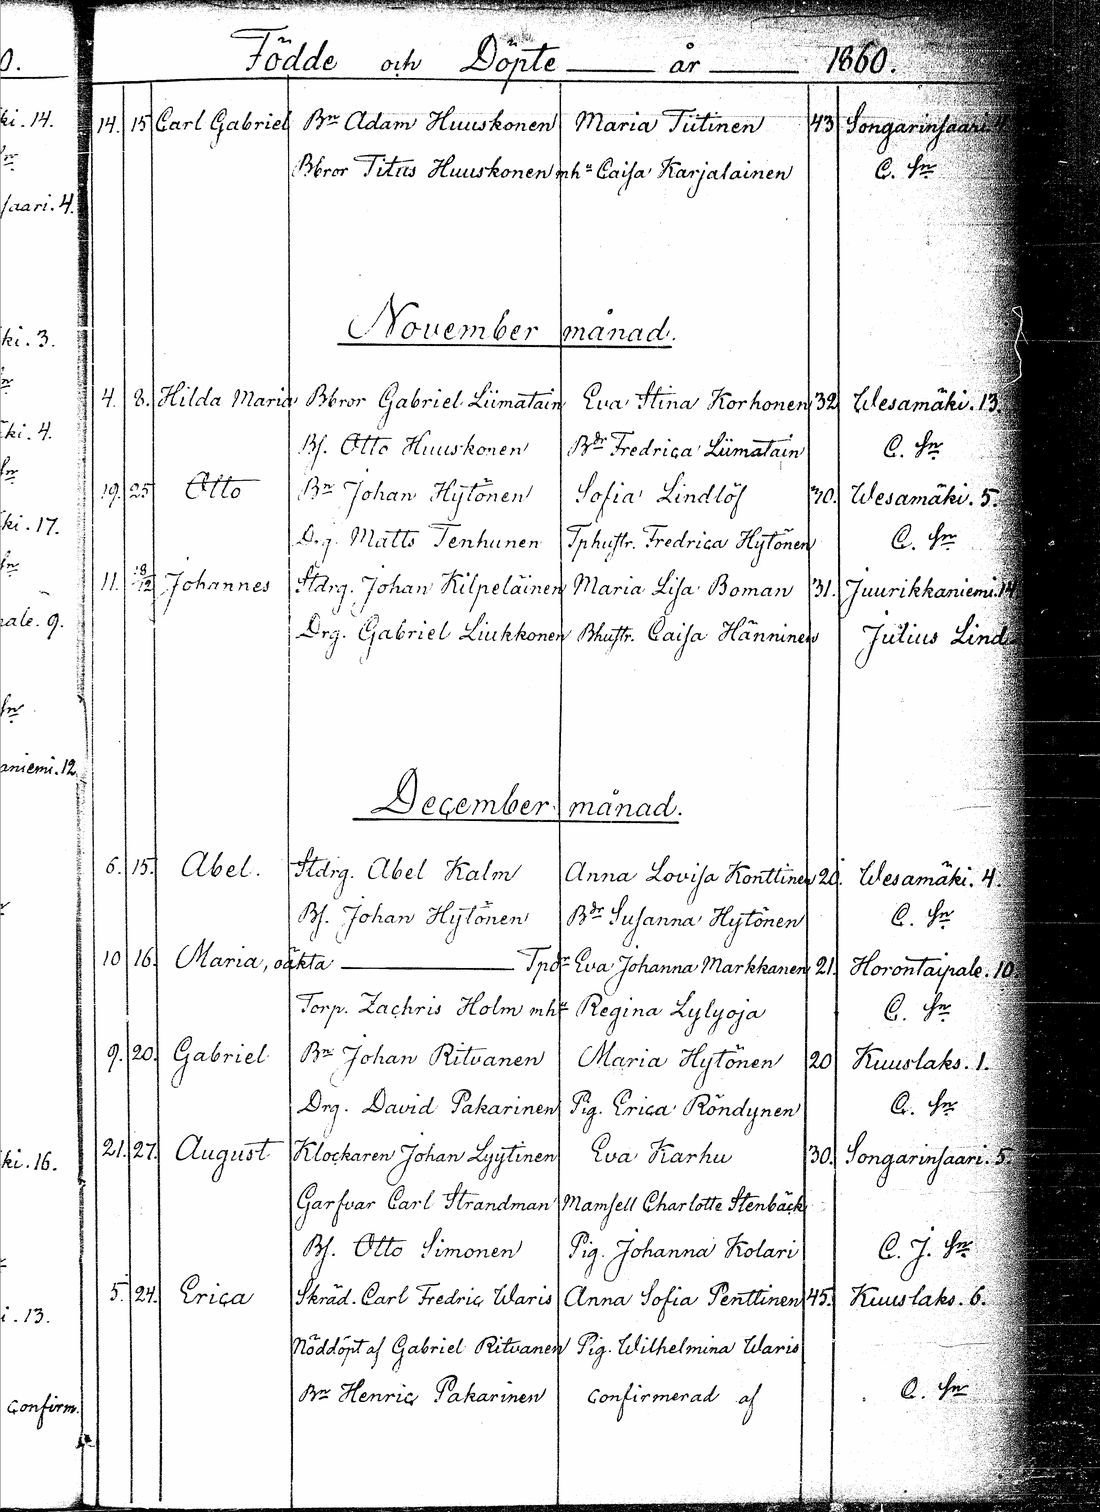 Födde och Döpte — år — 1860.
14. 15 Carl Gabriel Bn Adam Huuskonen Maria Tiitinen 43 Songarinsaari. 4.
Bbror Titus Huuskonen mhu Caisa Karjalainen C. Sn
November månad.
4. 8. Hilda Maria Bbror Gabriel Liimatain Eva Stina Korhonen 32 Wesamäki. 13.
Bs. Otto Huuskonen Bdr Fredrica Liimatain C. Sn
19. 25 Otto Bn Johan Hytönen Sofia Lindlöf 30. Wesamäki. 5.
Drg. Matts Tenhunen Tphustr. Fredrica Hytönen C. Sn
11. 18/12 Johannes Stdrg. Johan Kilpeläinen Maria Lisa Boman 31. Juurikkaniemi. 14
Drg. Gabriel Liukkonen Bhustr. Caisa Hänninen Julius Lind
December månad.
6. 15. Abel. Stdrg. Abel Kalm Anna Lovisa Konttinen 20. Wesamäki. 4.
Bs. Johan Hytönen Bdr Susanna Hytönen C. Sn
10 16. Maria, oäkta — Tpdr Eva Johanna Markkanen 21. Horontaipale. 10.
Torp. Zachris Holm mhu Regina Lylyoja C. Sn
9. 20. Gabriel Bn Johan Ritvanen Maria Hytönen 20 Kuuslaks. 1.
Drg. David Pakarinen Pig. Erica Röndynen C. Sn
21. 27. August Klockaren Johan Lyytinen Eva Karhu 30. Songarinsaari. 5.
Garfvar Carl Strandman Mamsell Charlotte Stenbäck
Bs. Otto Simonen Pig. Johanna Kolari C. J. Sn
5. 24. Erica Skräd. Carl Fredric Waris Anna Sofia Penttinen 45. Kuuslaks. 6.
Nöddöpt af Gabriel Ritvanen Pig. Wilhelmina Waris
Bn Henric Pakarinen confirmerad af C. Sn